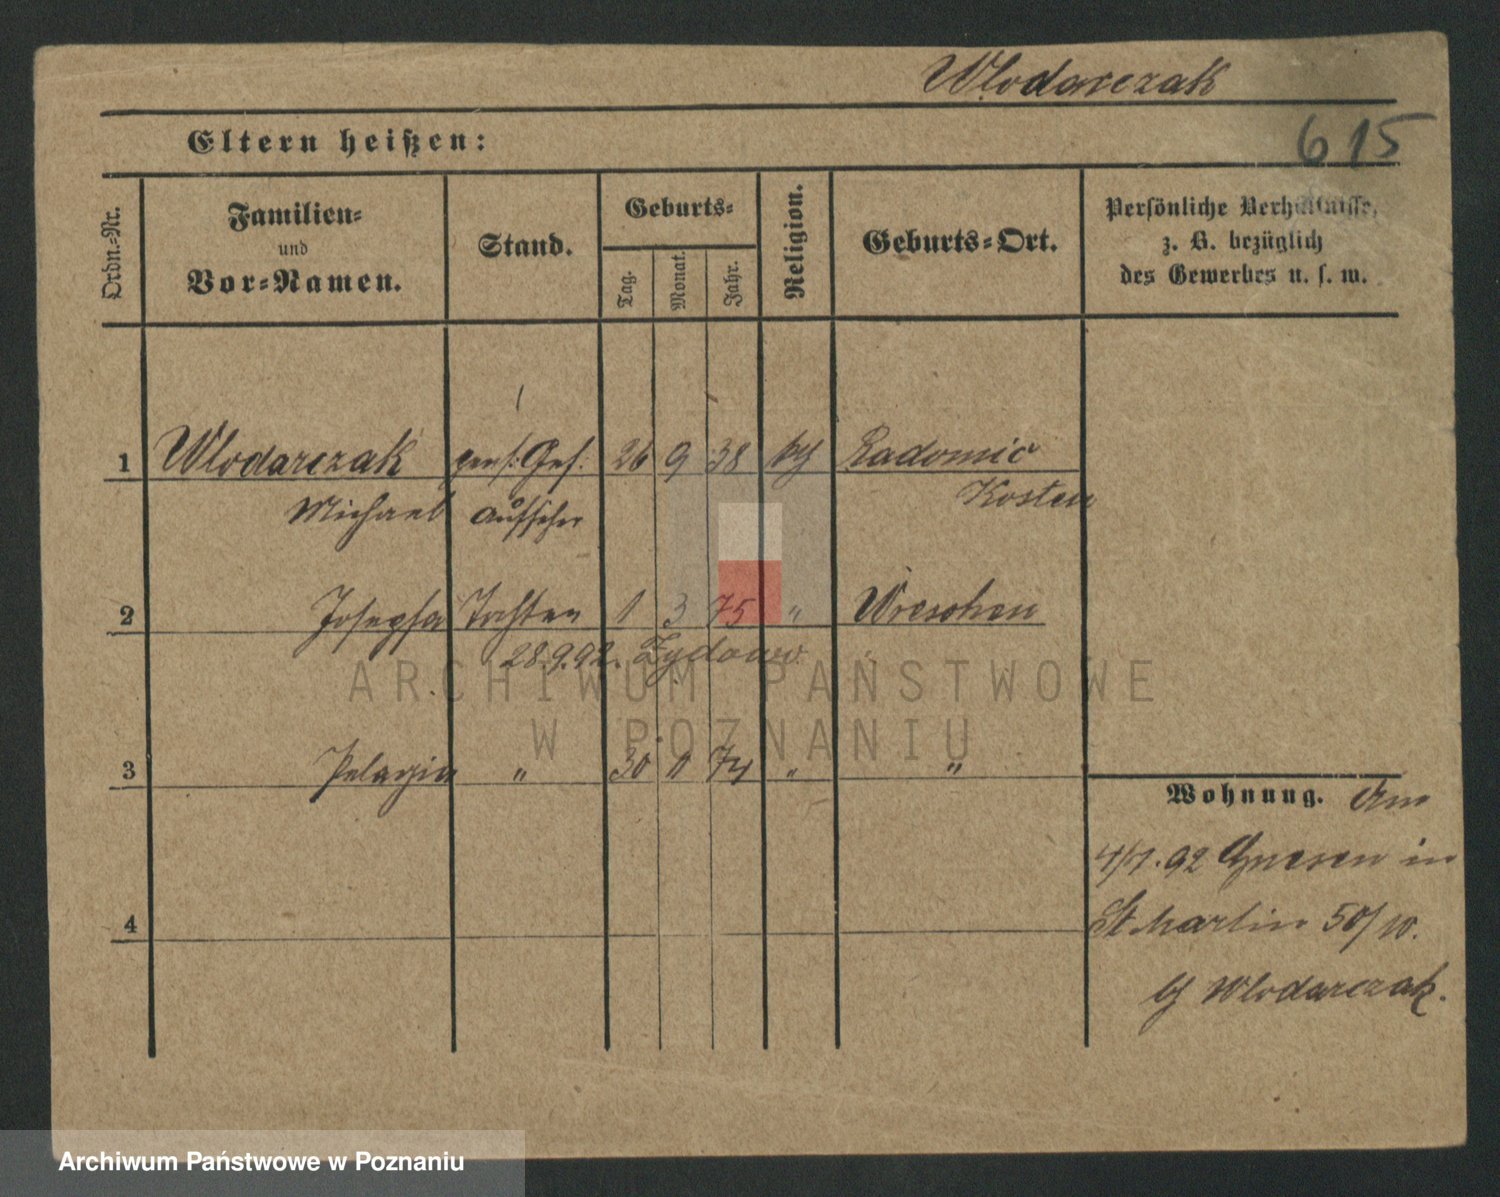 Wlodarczak
615
Eltern heißen:
Ordn.-Nr.
Familien-
und
Vor-Namen.
Stand.
Geburts-
Tag.
Monat.
Jahr.
Religion.
Geburts-Ort.
Persönliche Verhältnisse,
z. B. bezüglich
des Gewerbes u. s. w.
1 Wlodarczak pens. Gef. 26 9 38 Radomic
Michael Aufseher Kosten
2 Josepha Tochter 1 3 75 " Wreschen
28.9.92. Zydowo
ARCHIWUM PAŃSTWOWE
W POZNANIU
3 Pelagia " 30 11 74 " "
Wohnung. Am
92 Gnesen in
St Martin 50/10.
Wlodarczak.
4
Archiwum Państwowe w Poznaniu